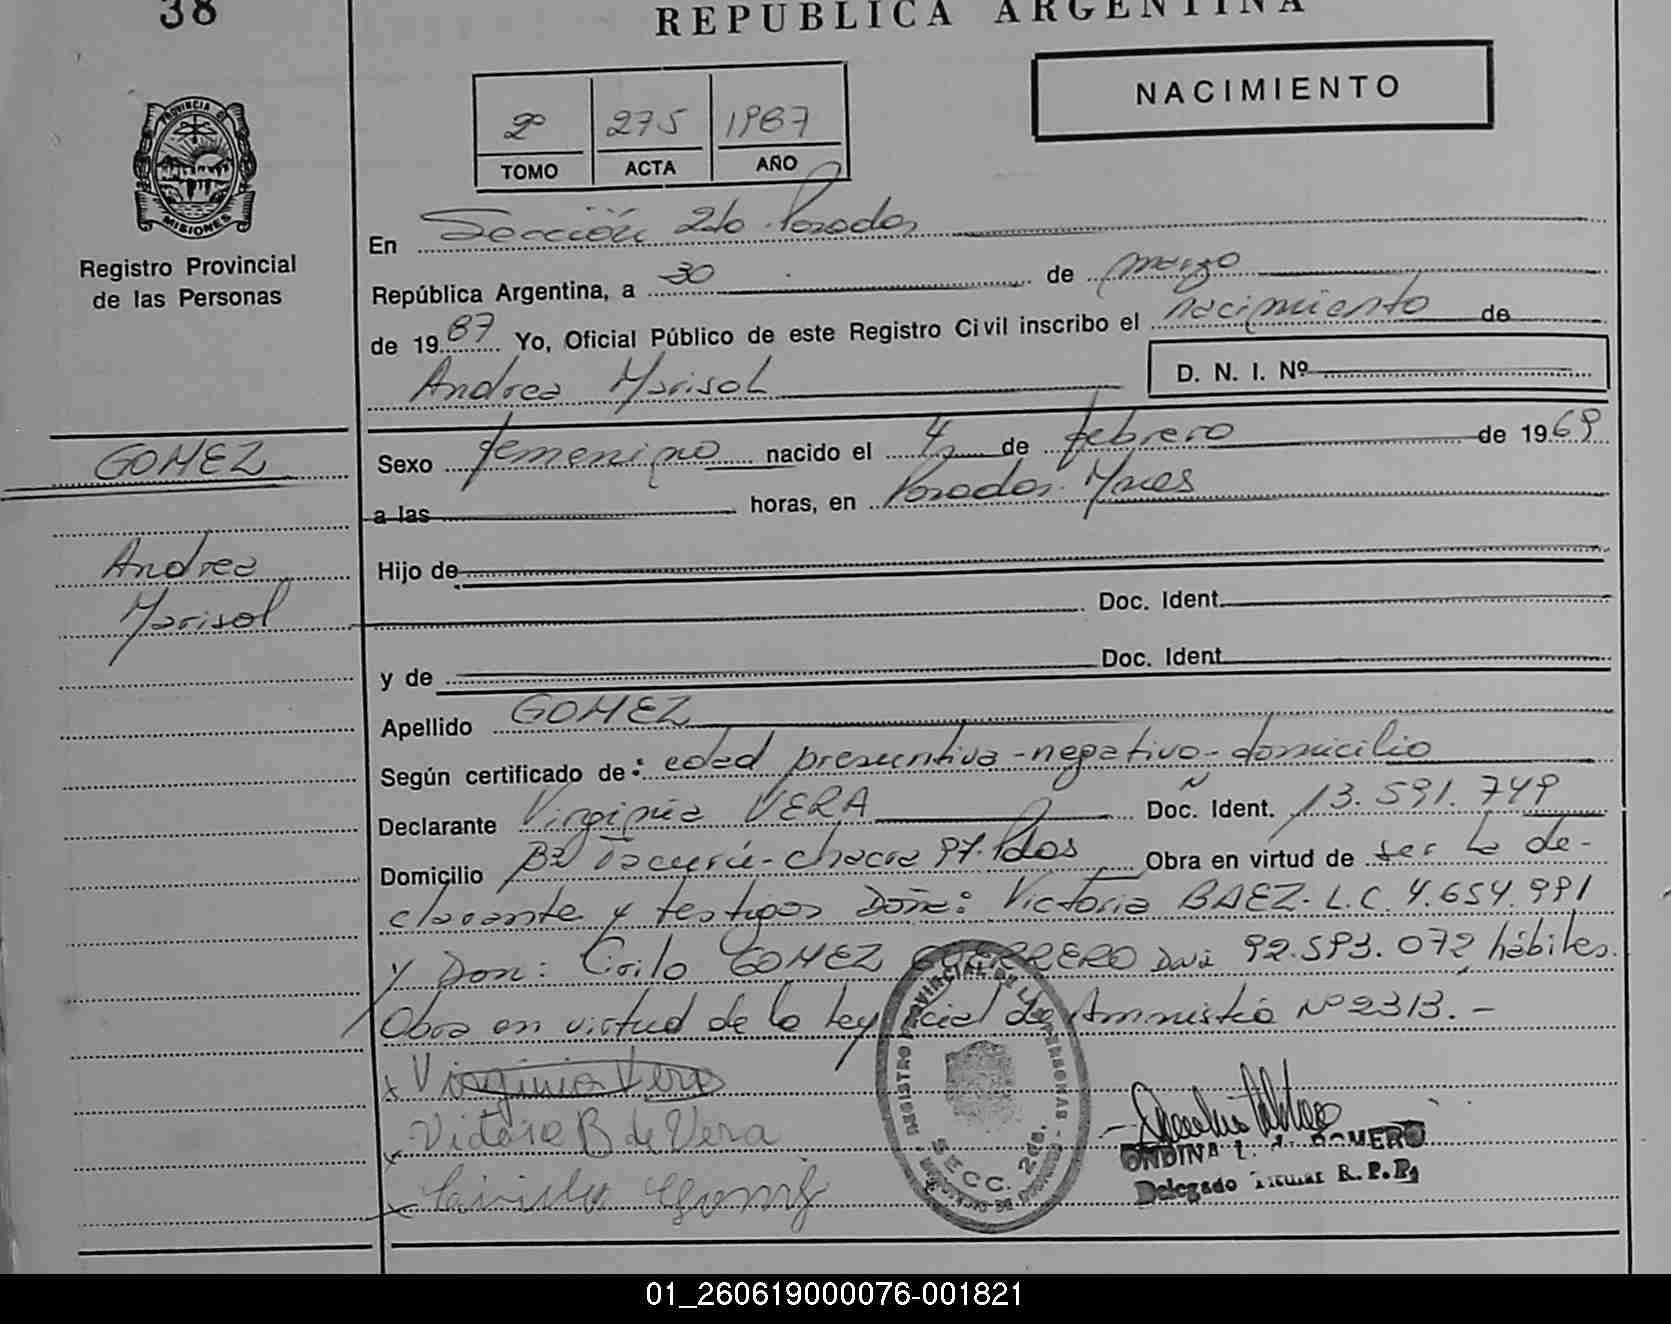 38
REPUBLICA ARGENTINA
NACIMIENTO
2º 275 1987
TOMO ACTA AÑO
PROVINCIA DE
MISIONES
Registro Provincial
de las Personas
En Sección 2da Posadas
República Argentina, a 30 de marzo
de 1987 Yo, Oficial Público de este Registro Civil inscribo el nacimiento de
Andrea Marisol
D. N. I. Nº
GOMEZ
Andrea
Marisol
Sexo femenino nacido el 4 de febrero de 1969
a las horas, en Posadas Mnes
Hijo de
Doc. Ident.
y de Doc. Ident.
Apellido GOMEZ
Según certificado de: edad presuntiva-negativo-domicilio
Declarante Virginia VERA Doc. Ident. 13.591.749
Domicilio Bº Tacurú-chacra 97. Pdas Obra en virtud de ser la de-
clarante y testigos Doña: Victoria BAEZ. L.C. 4.654.991
y Don: Cirilo GOMEZ GUERRERO Dni 92.593.072 hábiles.
Obra en virtud de la ley de Amnistía Nº 2313.-
x Virginia Vera
x Victoria B de Vera
x Cirilo Gomez
REGISTRO PROVINCIAL DE LAS PERSONAS
SECC. 2da.
ONDINA ROMERO
Delegado Titular R. P. P.
01_260619000076-001821